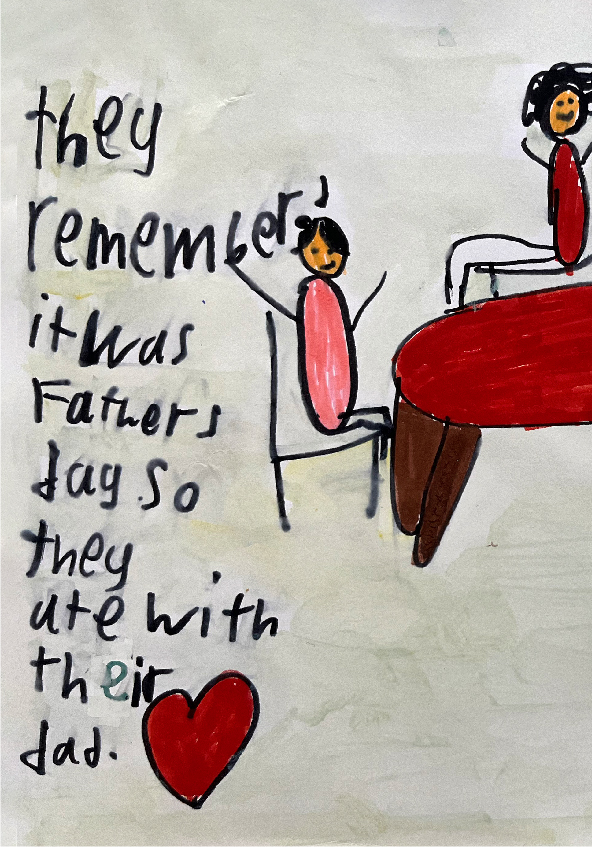 they
remember'd
it was
Fathers
day so
they
ate with
their
dad.